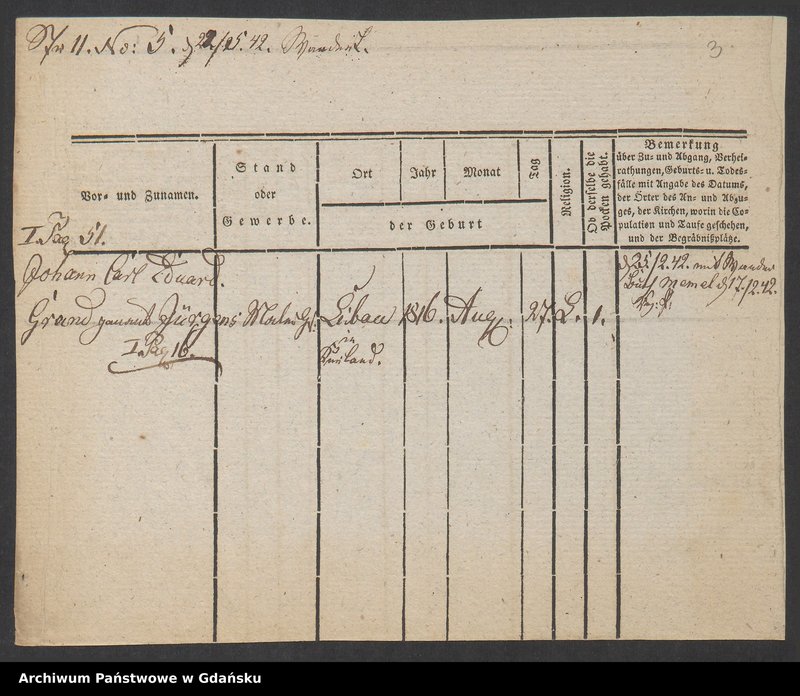 No: 5. d 22/5. 42.
3
Vor- und Zunamen.
Stand
oder
Gewerbe.
Ort
Jahr
Monat
Tag
der Geburt
Religion.
Ob derselbe die
Pocken gehabt.
Bemerkung
über Zu- und Abgang, Verhei-
rathungen, Geburts- u. Todes-
fälle mit Angabe des Datums,
der Örter des An- und Abzu-
ges, der Kirchen, worin die Co-
pulation und Taufe geschehen,
und der Begräbnißplätze.
I. Pag 51.
Johann Carl Eduard.
Grand genannt Jürgens
Maler Gs:
Libau
in
Kurland.
1816.
Aug:
27.
L.
1.
d 25/2. 42. mit Wander
Buch Memel d 17/2. 42.
I. Pag 16.
Archiwum Państwowe w Gdańsku